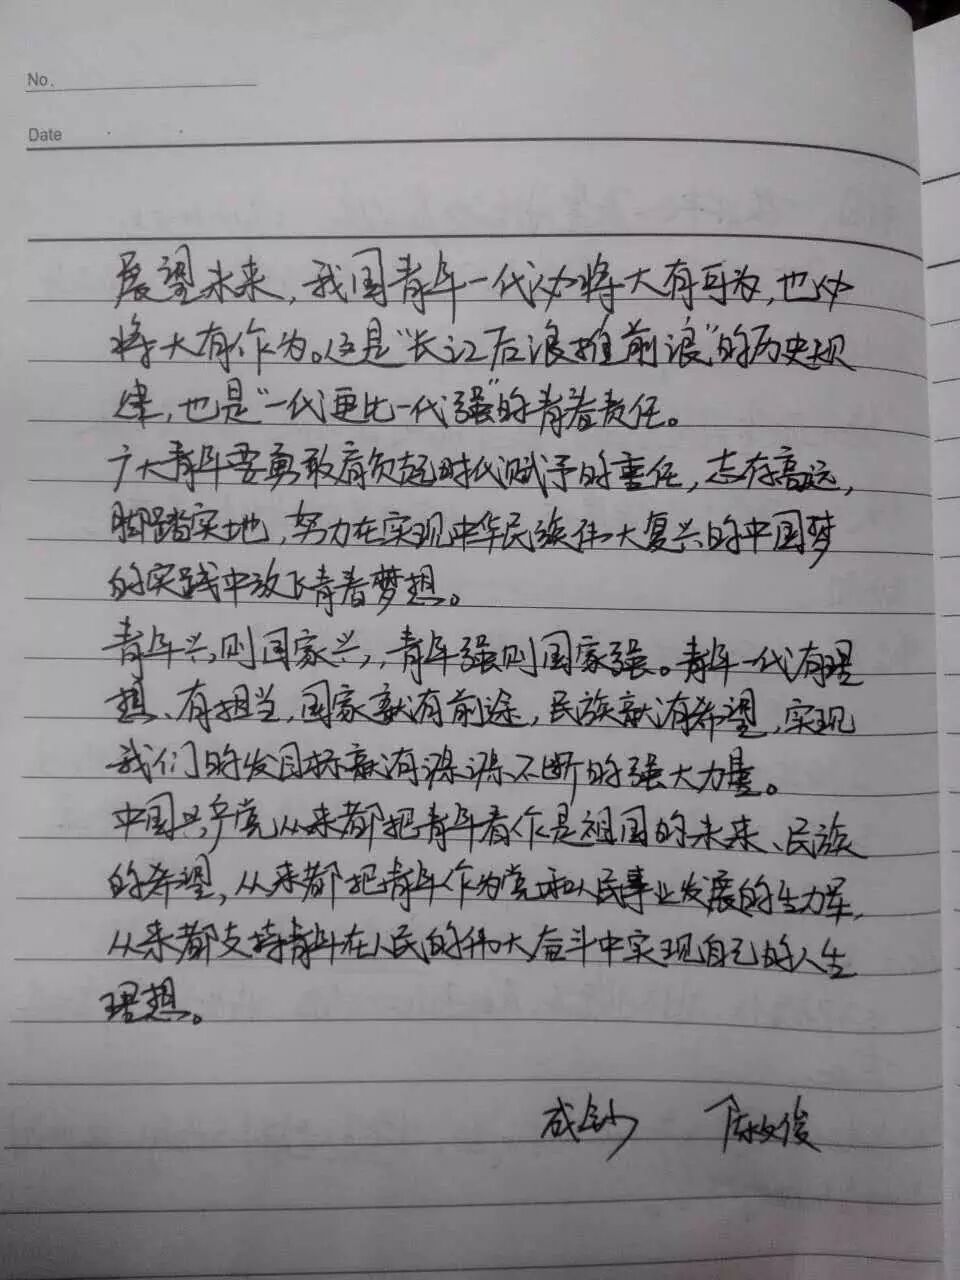 No.
Date
展望未来，我国青年一代必将大有可为，也必
将大有作为。这是“长江后浪推前浪”的历史规
律，也是“一代更比一代强”的青春责任。
广大青年要勇敢肩负起时代赋予的重任，志存高远，
脚踏实地，努力在实现中华民族伟大复兴的中国梦
的实践中放飞青春梦想。
青年兴，则国家兴，，青年强则国家强。青年一代有理
想、有担当，国家就有前途，民族就有希望，实现
我们的发目标就有源源不断的强大力量。
中国共产党从来都把青年看作是祖国的未来、民族
的希望，从来都把青年作为党和人民事业发展的生力军，
从来都支持青年在人民的伟大奋斗中实现自己的人生
理想。